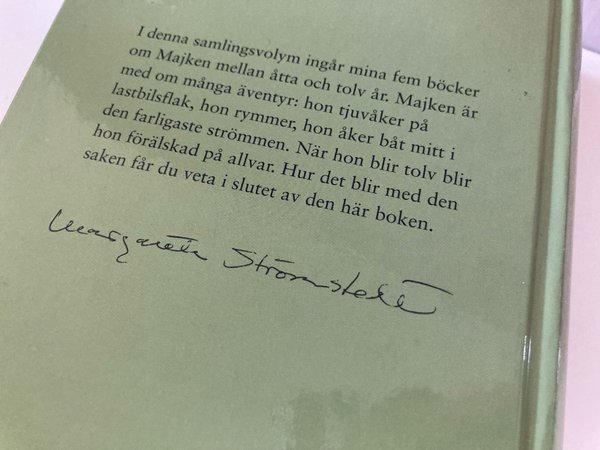 I denna samlingsvolym ingår mina fem böcker
om Majken mellan åtta och tolv år. Majken är
med om många äventyr: hon tjuvåker på
lastbilsflak, hon rymmer, hon åker båt mitt i
den farligaste strömmen. När hon blir tolv blir
hon förälskad på allvar. Hur det blir med den
saken får du veta i slutet av den här boken.
Margareta Strömstedt